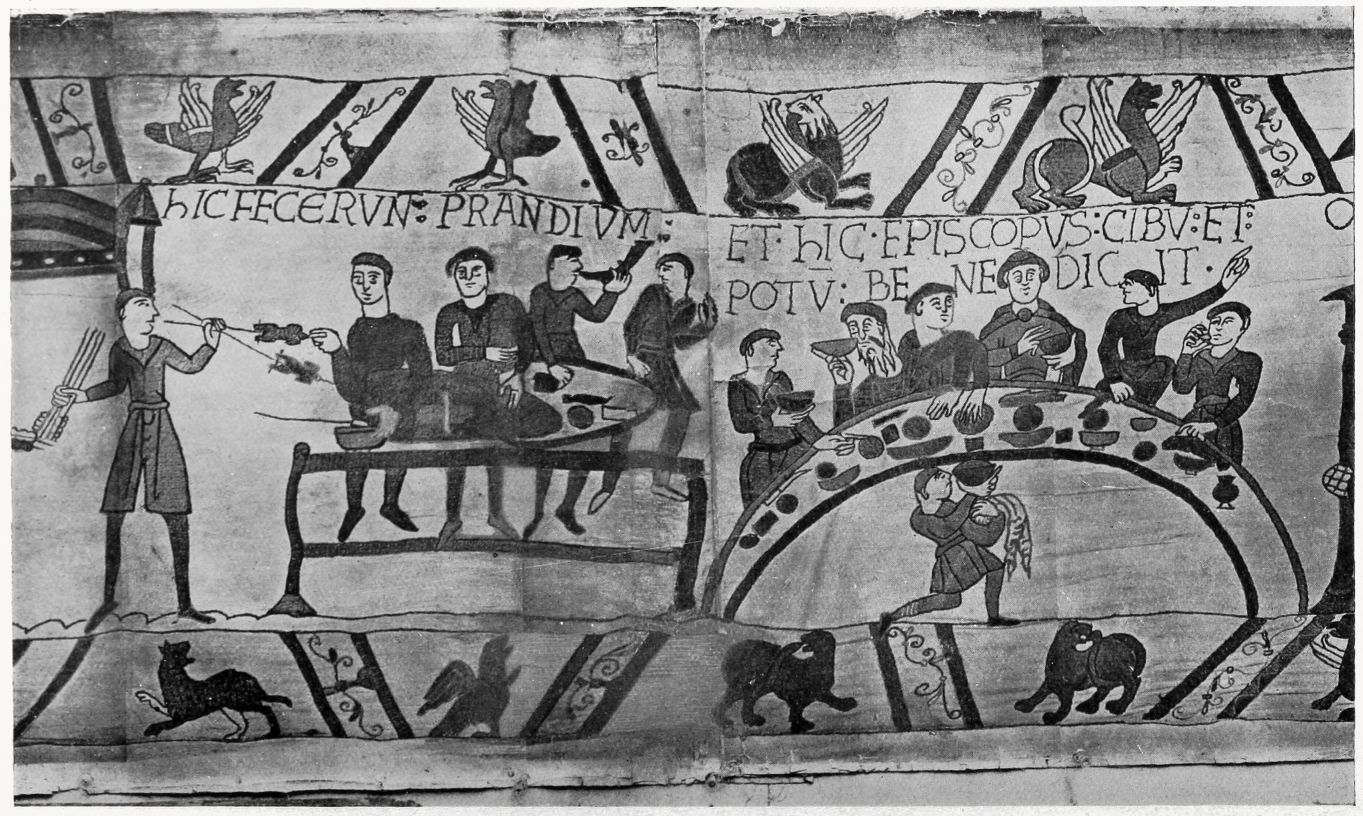 hIC FECERVN: PRANDIVM:
ET·hIC·EPISCOPVS:CIBV:ET:
POTV̄: BENEDICIT·